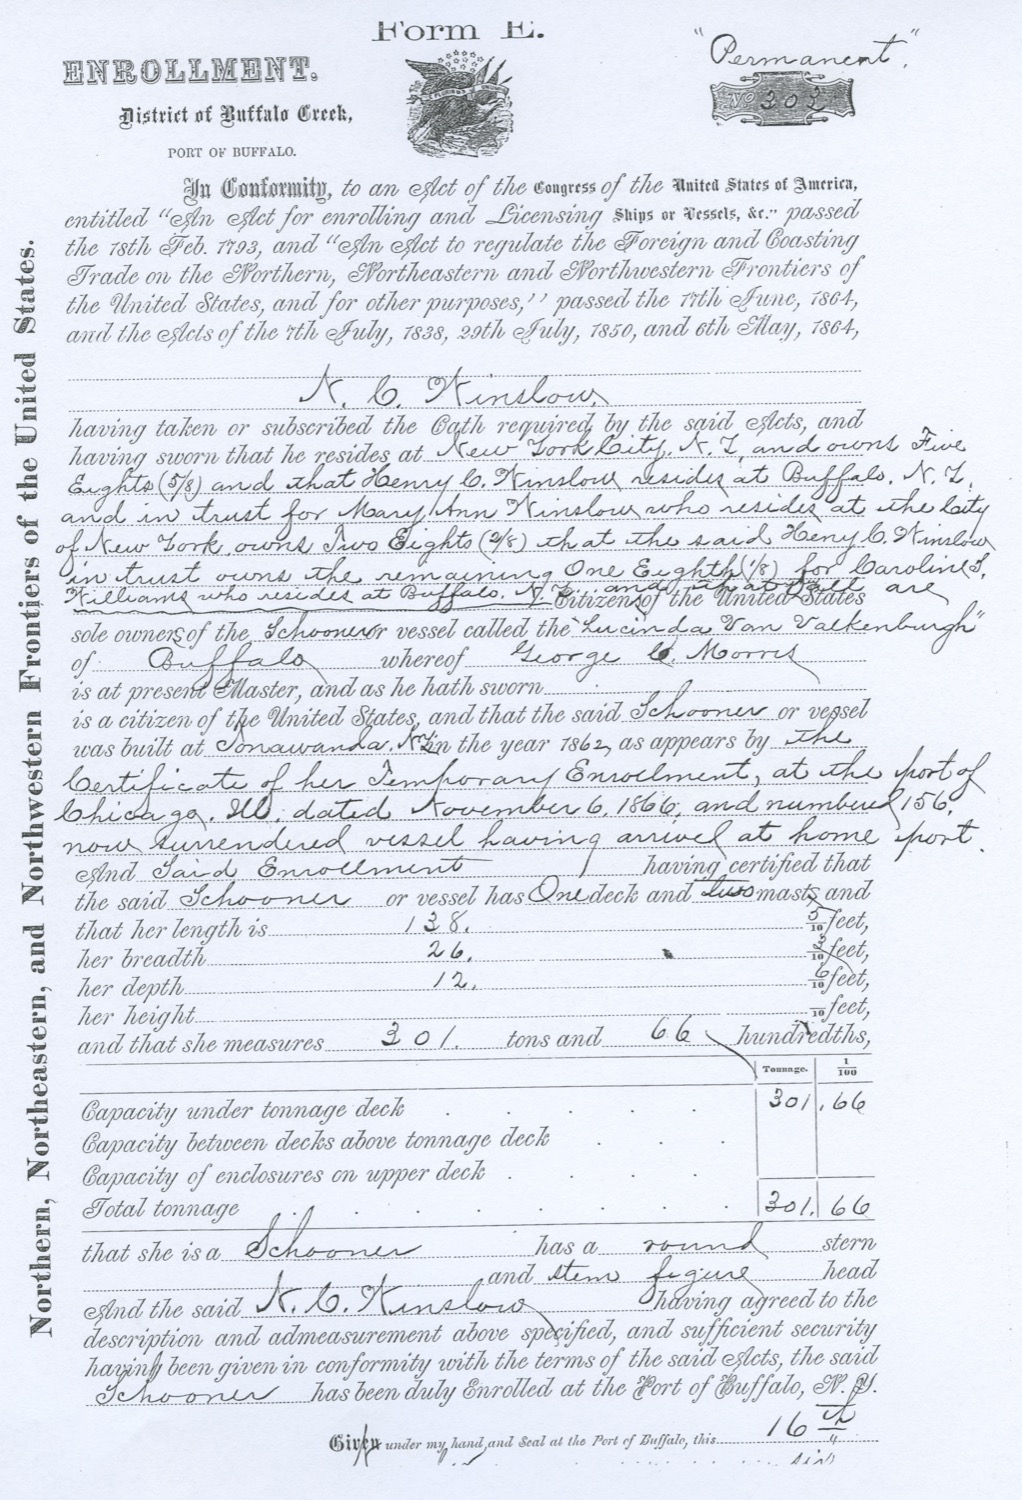 Form E.
"Permanent".
ENROLLMENT.
No 303
District of Buffalo Creek,
PORT OF BUFFALO.
In Conformity, to an Act of the Congress of the United States of America,
entitled "An Act for enrolling and Licensing Ships or Vessels, &c." passed
the 18th Feb. 1793, and "An Act to regulate the Foreign and Coasting
Trade on the Northern, Northeastern and Northwestern Frontiers of
the United States, and for other purposes," passed the 17th June, 1864,
and the Acts of the 7th July, 1838, 29th July, 1850, and 6th May, 1864,
N. C. Winslow
having taken or subscribed the Oath required by the said Acts, and
having sworn that he resides at New York City. N. Y. and owns Five
Eights (5/8) and that Henry C. Winslow resides at Buffalo. N. Y.
and in trust for Mary Ann Winslow who resides at the City
of New York owns Two Eights (2/8) that the said Henry C. Winslow
in trust owns the remaining One Eighth (1/8) for Caroline S.
Williams who resides at Buffalo. N. Y. and that all are
Citizens of the United States
sole owners of the Schooner or vessel called the "Lucinda Van Valkenburgh"
of Buffalo whereof George C. Morris
is at present Master, and as he hath sworn
is a citizen of the United States, and that the said Schooner or vessel
was built at Tonawanda. N.Y. in the year 1862, as appears by the
Certificate of her Temporary Enrollment, at the port of
Chicago. Ill. dated November 6, 1866, and numbered 156,
now surrendered vessel having arrived at home port.
And Said Enrollment having certified that
the said Schooner or vessel has One deck and two masts and
that her length is 138. 5/10 feet,
her breadth 26. /10 feet,
her depth 12. 6/10 feet,
her height /10 feet,
and that she measures 301. tons and 66 hundredths,
Tonnage. 1/100
Capacity under tonnage deck 301. 66
Capacity between decks above tonnage deck
Capacity of enclosures on upper deck
Total tonnage 301. 66
that she is a Schooner has a round stern
and stem figure head
And the said N. C. Winslow having agreed to the
description and admeasurement above specified, and sufficient security
having been given in conformity with the terms of the said Acts, the said
Schooner has been duly Enrolled at the Port of Buffalo, N. Y.
Given under my hand and Seal at the Port of Buffalo, this 16th
Northern, Northeastern, and Northwestern Frontiers of the United States.